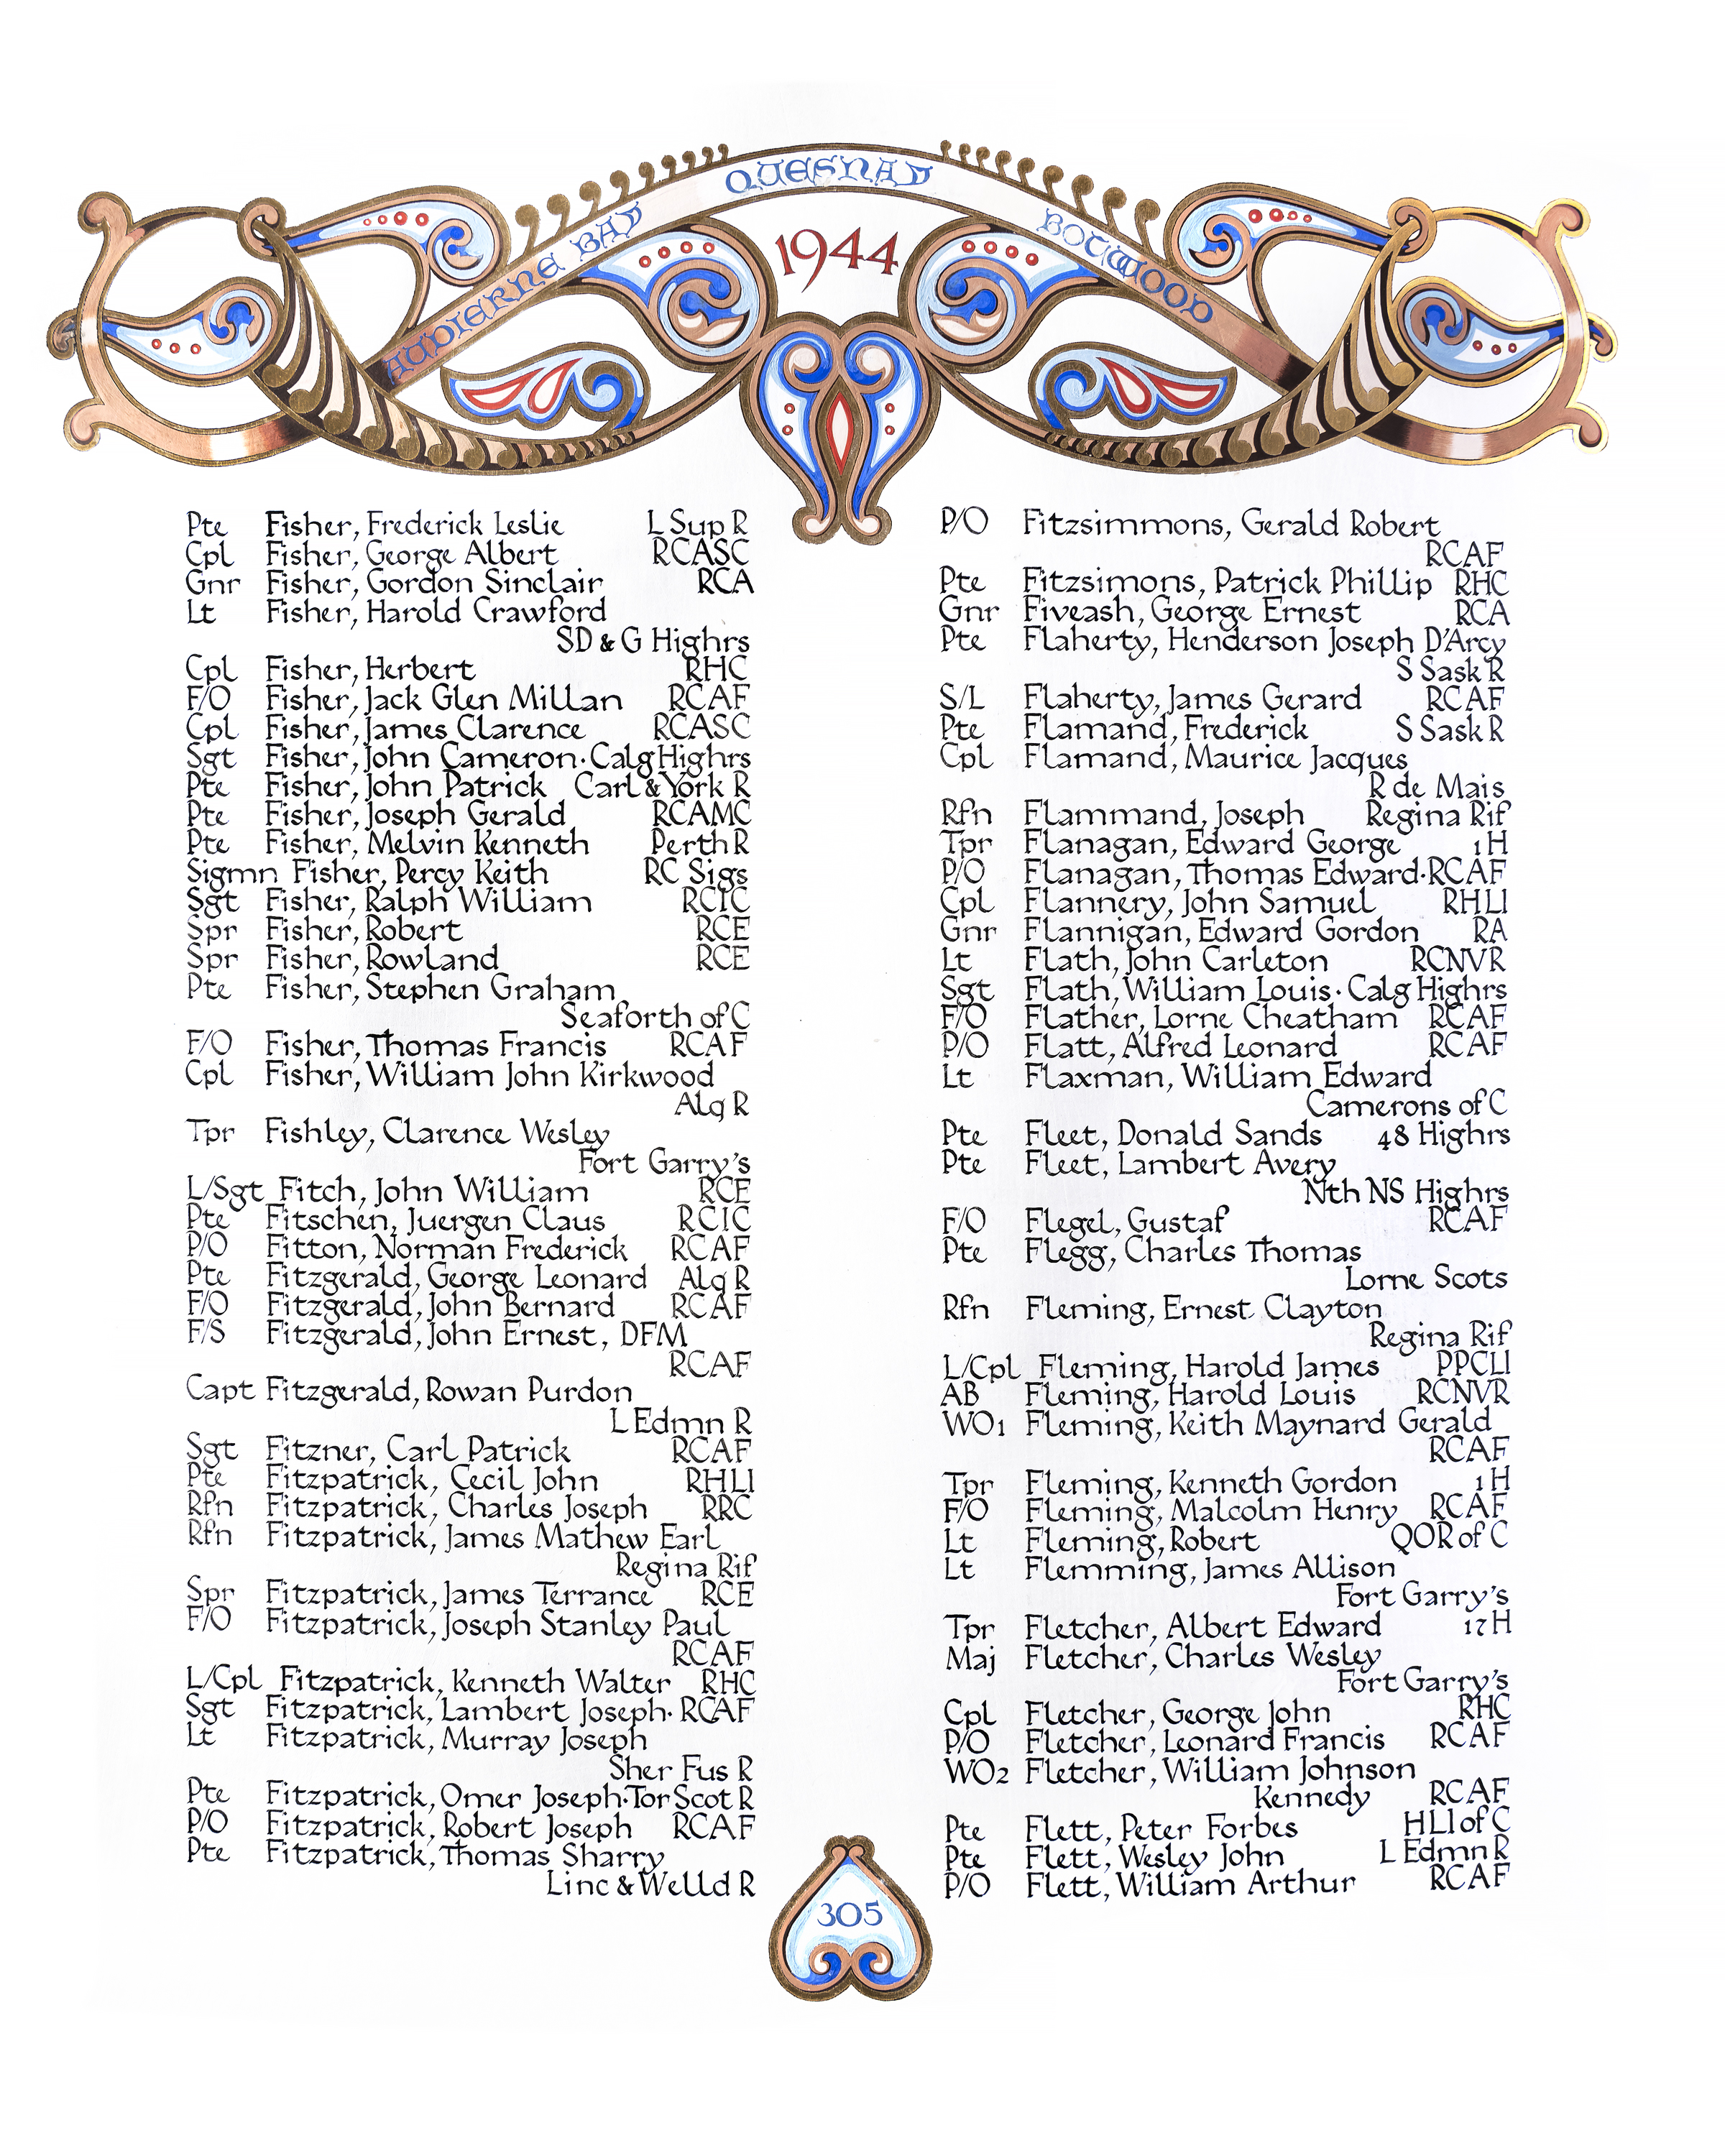 AUDIERNE BAY QUESNAY BOTWOOD
1944
Pte Fisher, Frederick Leslie L Sup R
Cpl Fisher, George Albert RCASC
Gnr Fisher, Gordon Sinclair RCA
Lt Fisher, Harold Crawford
SD & G Highrs
Cpl Fisher, Herbert RHC
F/O Fisher, Jack Glen Millan RCAF
Cpl Fisher, James Clarence RCASC
Sgt Fisher, John Cameron · Calg Highrs
Pte Fisher, John Patrick Carl & York R
Pte Fisher, Joseph Gerald RCAMC
Pte Fisher, Melvin Kenneth Perth R
Sigmn Fisher, Percy Keith RC Sigs
Sgt Fisher, Ralph William RCIC
Spr Fisher, Robert RCE
Spr Fisher, Rowland RCE
Pte Fisher, Stephen Graham
Seaforth of C
F/O Fisher, Thomas Francis RCAF
Cpl Fisher, William John Kirkwood
Alq R
Tpr Fishley, Clarence Wesley
Fort Garry's
L/Sgt Fitch, John William RCE
Pte Fitschen, Juergen Claus RCIC
P/O Fitton, Norman Frederick RCAF
Pte Fitzgerald, George Leonard Alq R
F/O Fitzgerald, John Bernard RCAF
F/S Fitzgerald, John Ernest, DFM
RCAF
Capt Fitzgerald, Rowan Purdon
L Edmn R
Sgt Fitzner, Carl Patrick RCAF
Pte Fitzpatrick, Cecil John RHLI
Rfn Fitzpatrick, Charles Joseph RRC
Rfn Fitzpatrick, James Mathew Earl
Regina Rif
Spr Fitzpatrick, James Terrance RCE
F/O Fitzpatrick, Joseph Stanley Paul
RCAF
L/Cpl Fitzpatrick, Kenneth Walter RHC
Sgt Fitzpatrick, Lambert Joseph · RCAF
Lt Fitzpatrick, Murray Joseph
Sher Fus R
Pte Fitzpatrick, Omer Joseph · Tor Scot R
P/O Fitzpatrick, Robert Joseph RCAF
Pte Fitzpatrick, Thomas Sharry
Linc & Welld R
P/O Fitzsimmons, Gerald Robert
RCAF
Pte Fitzsimons, Patrick Phillip RHC
Gnr Fiveash, George Ernest RCA
Pte Flaherty, Henderson Joseph D'Arcy
S Sask R
S/L Flaherty, James Gerard RCAF
Pte Flamand, Frederick S Sask R
Cpl Flamand, Maurice Jacques
R de Mais
Rfn Flammand, Joseph Regina Rif
Tpr Flanagan, Edward George 1 H
P/O Flanagan, Thomas Edward · RCAF
Cpl Flannery, John Samuel RHLI
Gnr Flannigan, Edward Gordon RA
Lt Flath, John Carleton RCNVR
Sgt Flath, William Louis · Calg Highrs
F/O Flather, Lorne Cheatham RCAF
P/O Flatt, Alfred Leonard RCAF
Lt Flaxman, William Edward
Camerons of C
Pte Fleet, Donald Sands 48 Highrs
Pte Fleet, Lambert Avery
Nth NS Highrs
F/O Flegel, Gustaf RCAF
Pte Flegg, Charles Thomas
Lorne Scots
Rfn Fleming, Ernest Clayton
Regina Rif
L/Cpl Fleming, Harold James PPCLI
AB Fleming, Harold Louis RCNVR
WO1 Fleming, Keith Maynard Gerald
RCAF
Tpr Fleming, Kenneth Gordon 1 H
F/O Fleming, Malcolm Henry RCAF
Lt Fleming, Robert QOR of C
Lt Flemming, James Allison
Fort Garry's
Tpr Fletcher, Albert Edward 17 H
Maj Fletcher, Charles Wesley
Fort Garry's
Cpl Fletcher, George John RHC
P/O Fletcher, Leonard Francis RCAF
WO2 Fletcher, William Johnson
Kennedy RCAF
Pte Flett, Peter Forbes HLI of C
Pte Flett, Wesley John L Edmn R
P/O Flett, William Arthur RCAF
305